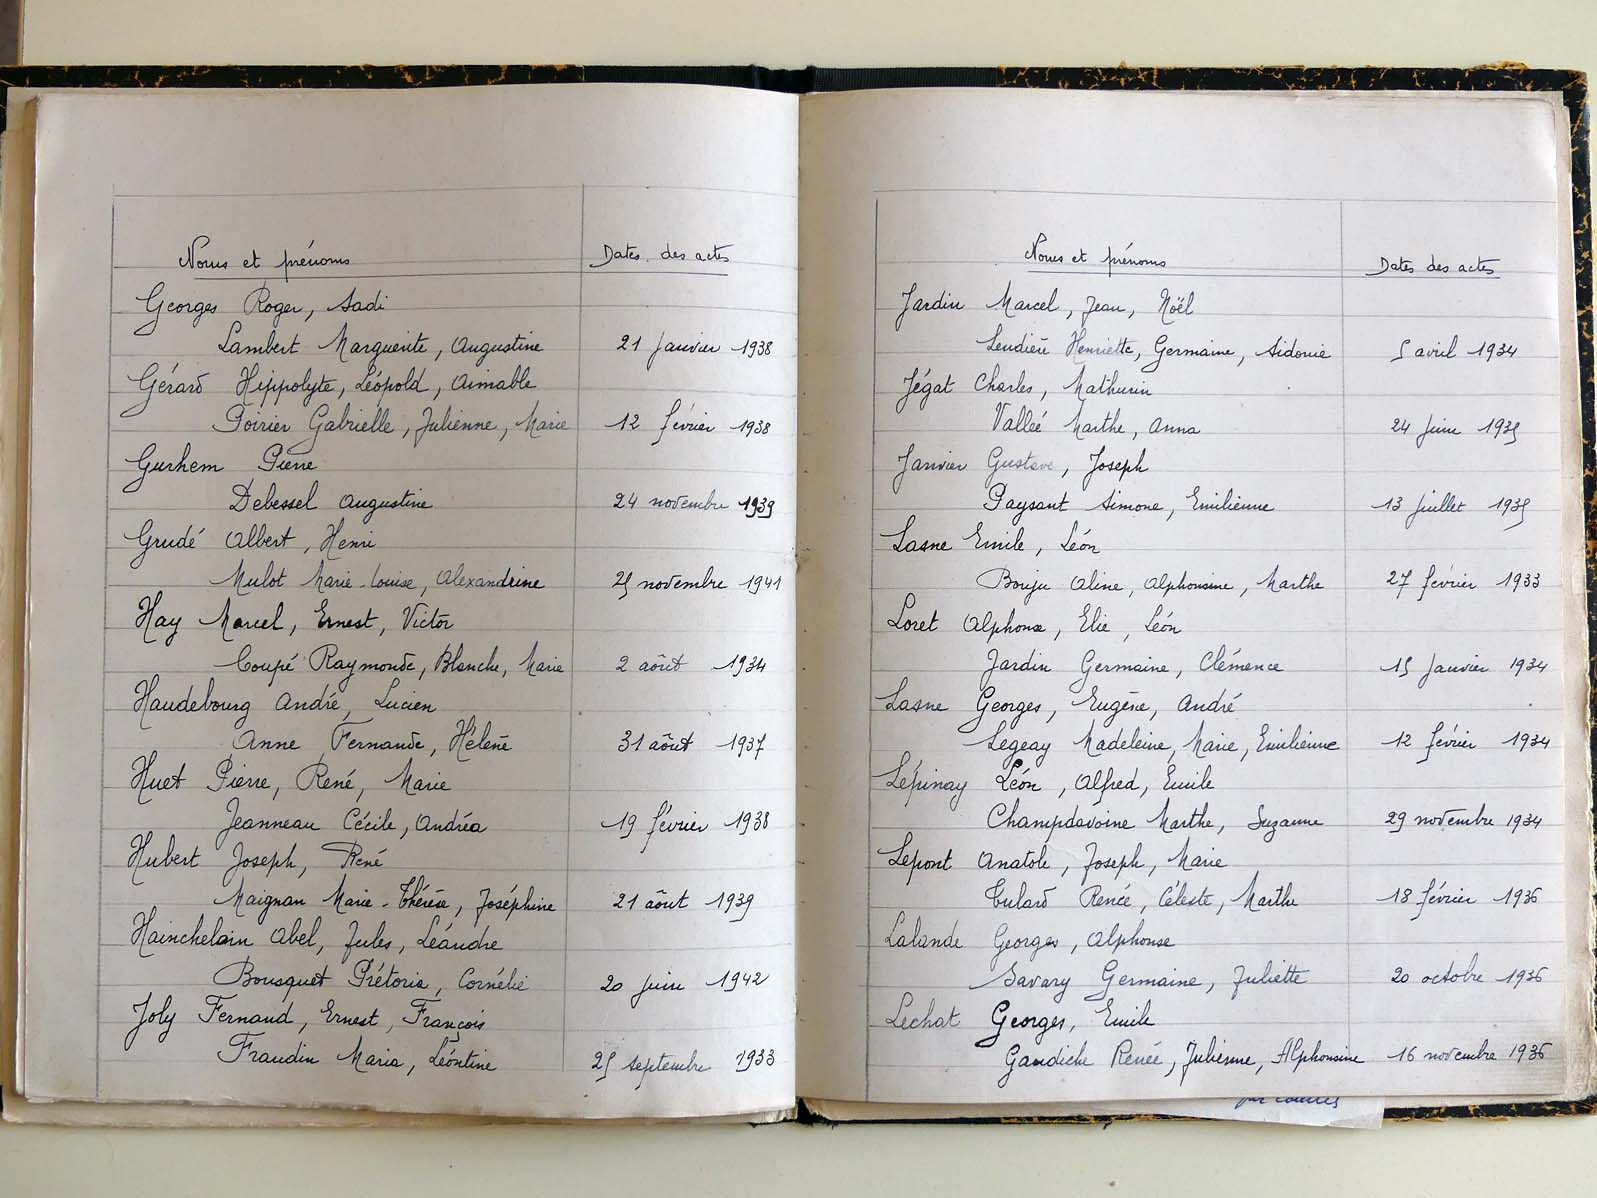 Noms et prénoms Dates des actes
Georges Roger, Sadi
Lambert Marguerite, Augustine 21 janvier 1938
Gérard Hippolyte, Léopold, Aimable
Poirier Gabrielle, Julienne, Marie 12 février 1938
Gurhem Pierre
Debessel Augustine 24 novembre 1939
Grudé Albert, Henri
Mulot Marie-Louise, Alexandrine 25 novembre 1941
Hay Marcel, Ernest, Victor
Coupé Raymonde, Blanche, Marie 2 aôut 1934
Haudebourg André, Lucien
Anne Fernande, Hélène 31 aôut 1937
Huet Pierre, René, Marie
Jeanneau Cécile, Andréa 19 février 1938
Hubert Joseph, René
Maignan Marie-Thérèse, Joséphine 21 aôut 1939
Hainchelain Abel, Jules, Léandre
Bousquet Prétoria, Cornélie 20 juin 1942
Joly Fernand, Ernest, François
Fraudin Maria, Léontine 25 septembre 1933
Noms et prénoms Dates des actes
Jardin Marcel, Jean, Noël
Lendière Henriette, Germaine, Sidonie 5 avril 1934
Jégat Charles, Mathurin
Vallée Marthe, Anna 24 juin 1935
Janvier Gustave, Joseph
Paysant Simone, Emilienne 13 juillet 1935
Lasne Emile, Léon
Bouju Aline, Alphonsine, Marthe 27 février 1933
Loret Alphonse, Elie, Léon
Jardin Germaine, Clémence 15 janvier 1934
Lasne Georges, Eugène, André
Legeay Madeleine, Marie, Emilienne 12 février 1934
Lépinay Léon, Alfred, Emile
Champdavoine Marthe, Suzanne 29 novembre 1934
Lepont Anatole, Joseph, Marie
Tulard Renée, Céleste, Marthe 18 février 1936
Lalande Georges, Alphonse
Savary Germaine, Juliette 20 octobre 1936
Lechat Georges, Emile
Gaudiche Renée, Julienne, Alphonsine 16 novembre 1936